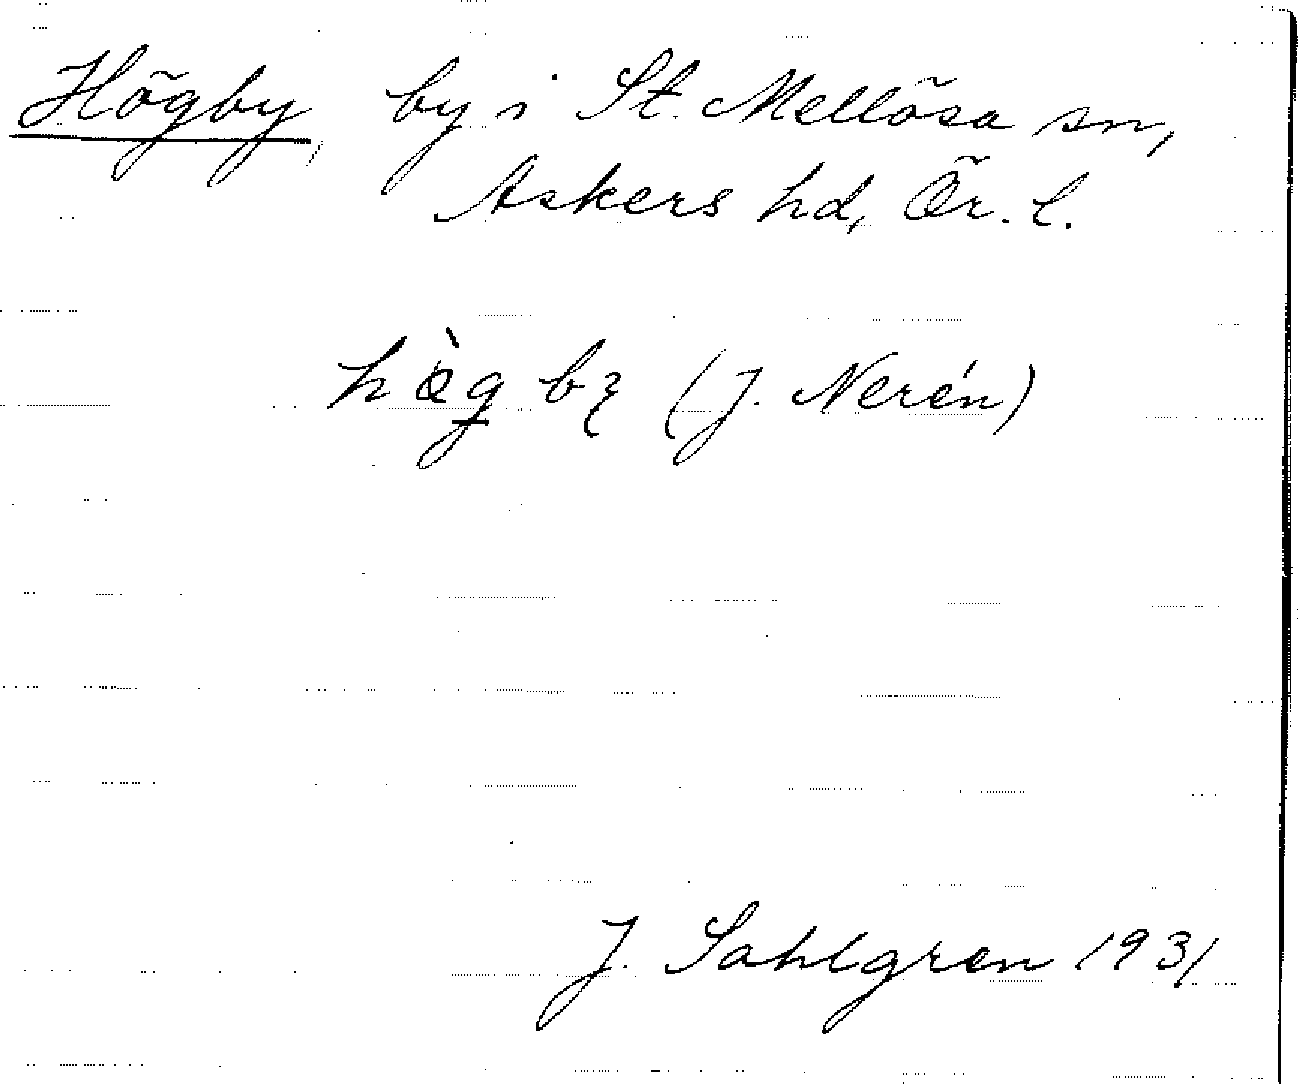 Högby, by i St. Mellösa sn,
Askers hd, Ör. l.
(J. Nerén)
J. Sahlgren 1931